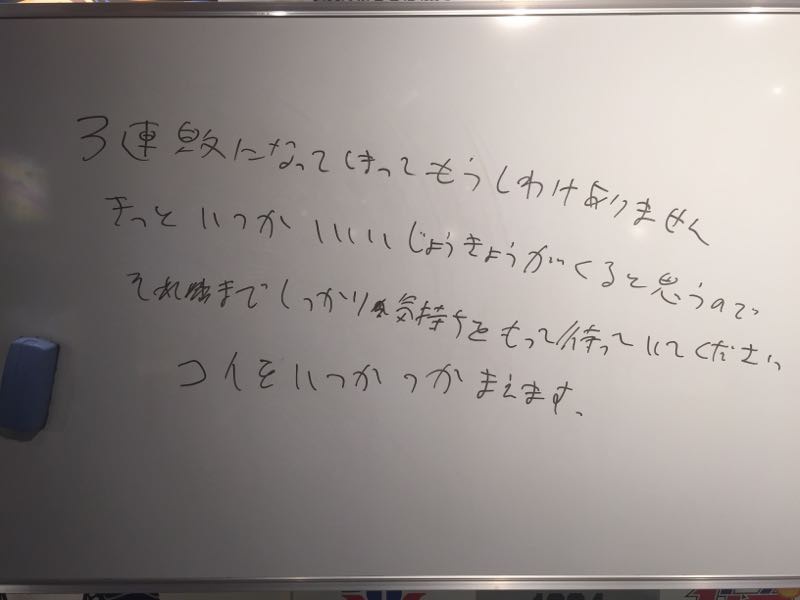 3連敗になってしまってもうしわけありません
きっといつかいいじょうきょうがくると思うので
それまでしっかり気持ちをもって待っていてください
コイをいつかつかまえます。